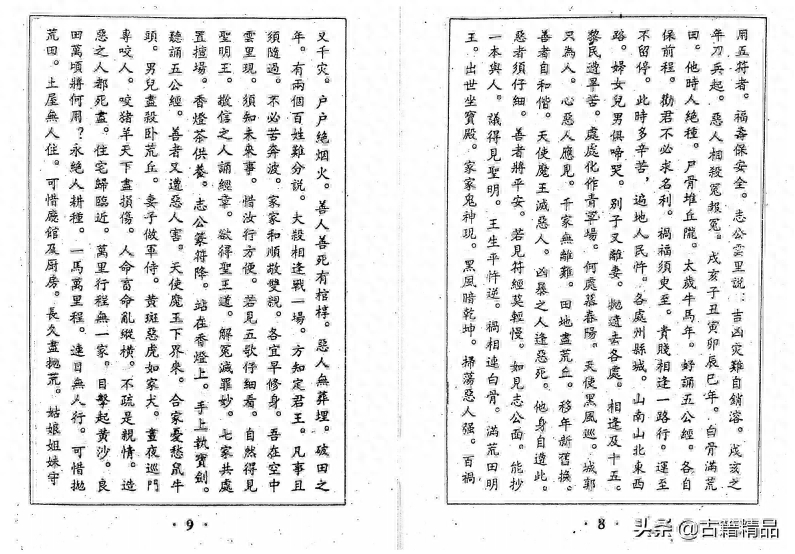 用五符者。福壽保安全。志公雲里説：吉凶灾難自銷溶。戌亥之
年刀兵起。惡人相殺冤報冤。戌亥子丑寅卯辰巳年。白骨滿荒
田。他時人絶種。尸骨堆丘隴。太歲牛馬年。好誦五公經。各自
保前程。勸君不必求名利。禍福須臾至。貴賤相逢一路行。運至
不留停。此時多辛苦，遍地人民忤。各處州縣城。山南山北東西
路。婦女兒男俱啼哭。别子又離妻。抛遺丢各處。相逢及十五。
黎民遭旱苦。處處化作青草場。何處慕春陽。天使黑風巡。城郭
只為人。心惡人應見。千家無離難。田地盡荒丘。移年新舊換。
善者自和偕。天使魔王滅惡人。凶暴之人逢惡死。他身自造此。
惡者須仔細。善者將平安。若見符經莫輕慢。如見志公面。能抄
一本與人。議得見聖明。王生平忤逆。禍相連白骨。滿荒田明
王。出世坐寶殿。家家鬼神現。黑風暗乾坤。掃蕩惡人强。百禍
·8·
又千灾。户户絶烟火。善人善死有棺椁。惡人無葬埋。破田之
年。有兩個百姓難分説。大殺相逢戰一場。方知定君王。凡事且
須隨過。不必苦奔波。家家和順敬雙親。各宜早修身。吾在空中
雲里現。須知未來事。惜汝行方便。若見五歌仔細看。自然得見
聖明王。敬信之人誦經章。欲得聖王道。解冤滅罪妙。七家共處
置擅場。香燈茶供養。志公篆符降。站在香燈上。手上執寶劍。
聽誦五公經。善者又遭惡人害。天使魔王下界來。合家憂愁鼠牛
頭。男兒盡殺卧荒丘。妻子做軍侍。黄斑惡虎如家犬。晝夜巡門
專咬人。咬猪羊天下盡損傷。人命畜命亂縱橫。不疏是親情。造
惡之人都死盡。住宅歸臨近。萬里行程無一家。目擊起黄沙。良
田萬頃將何用？永絶人耕種。一馬萬里程。連日無人行。可惜抛
荒田。土屋無人住。可惜廳館及厨房。長久盡抛荒。姑娘姐妹守
·9·
头条 @古籍精品